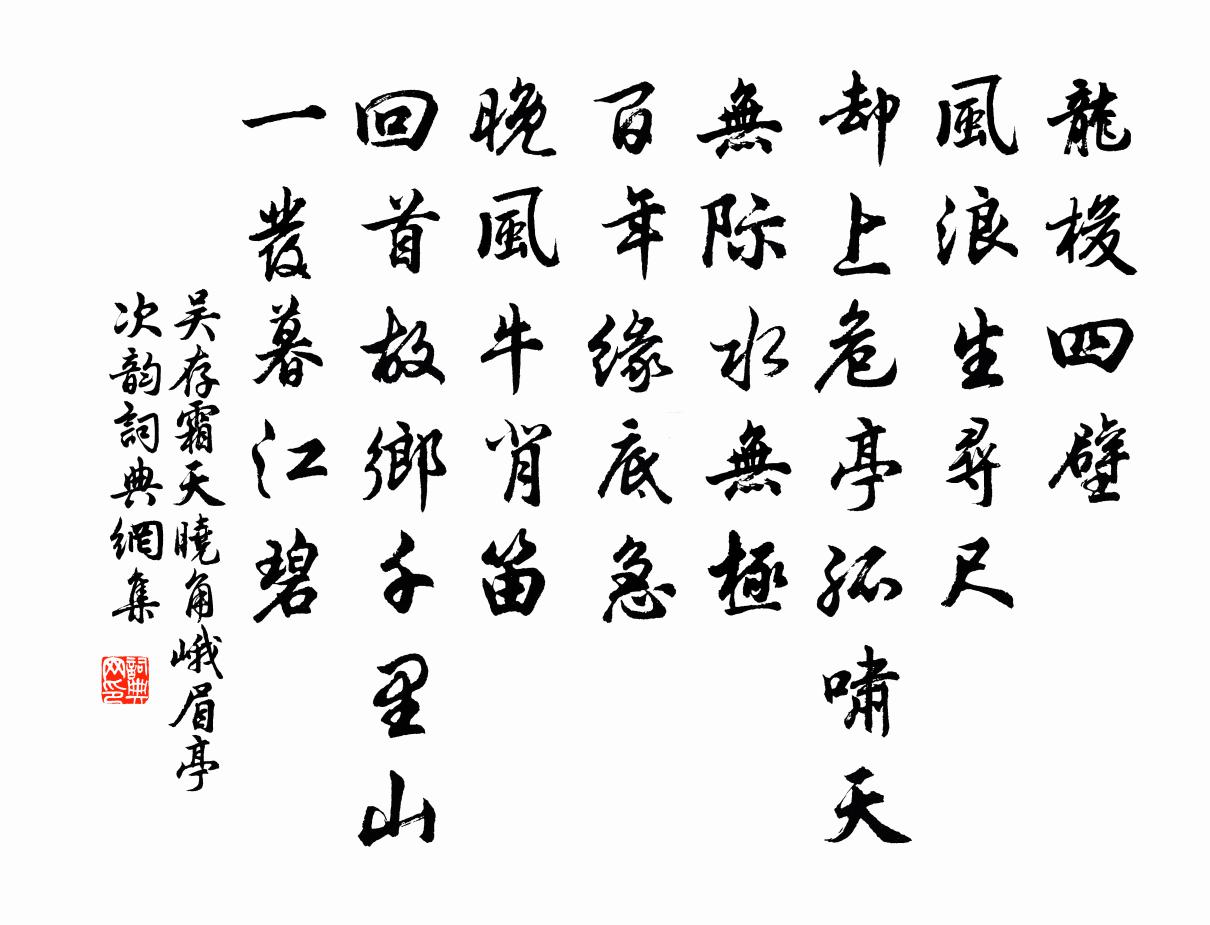 龍梭四壁
風浪生尋尺
却上危亭孤嘯天
無際水無極
百年緣底急
晚風牛背笛
回首故鄉千里山
一發暮江碧
吴存霜天曉角峨眉亭
次韵詞典網集
詞典网印